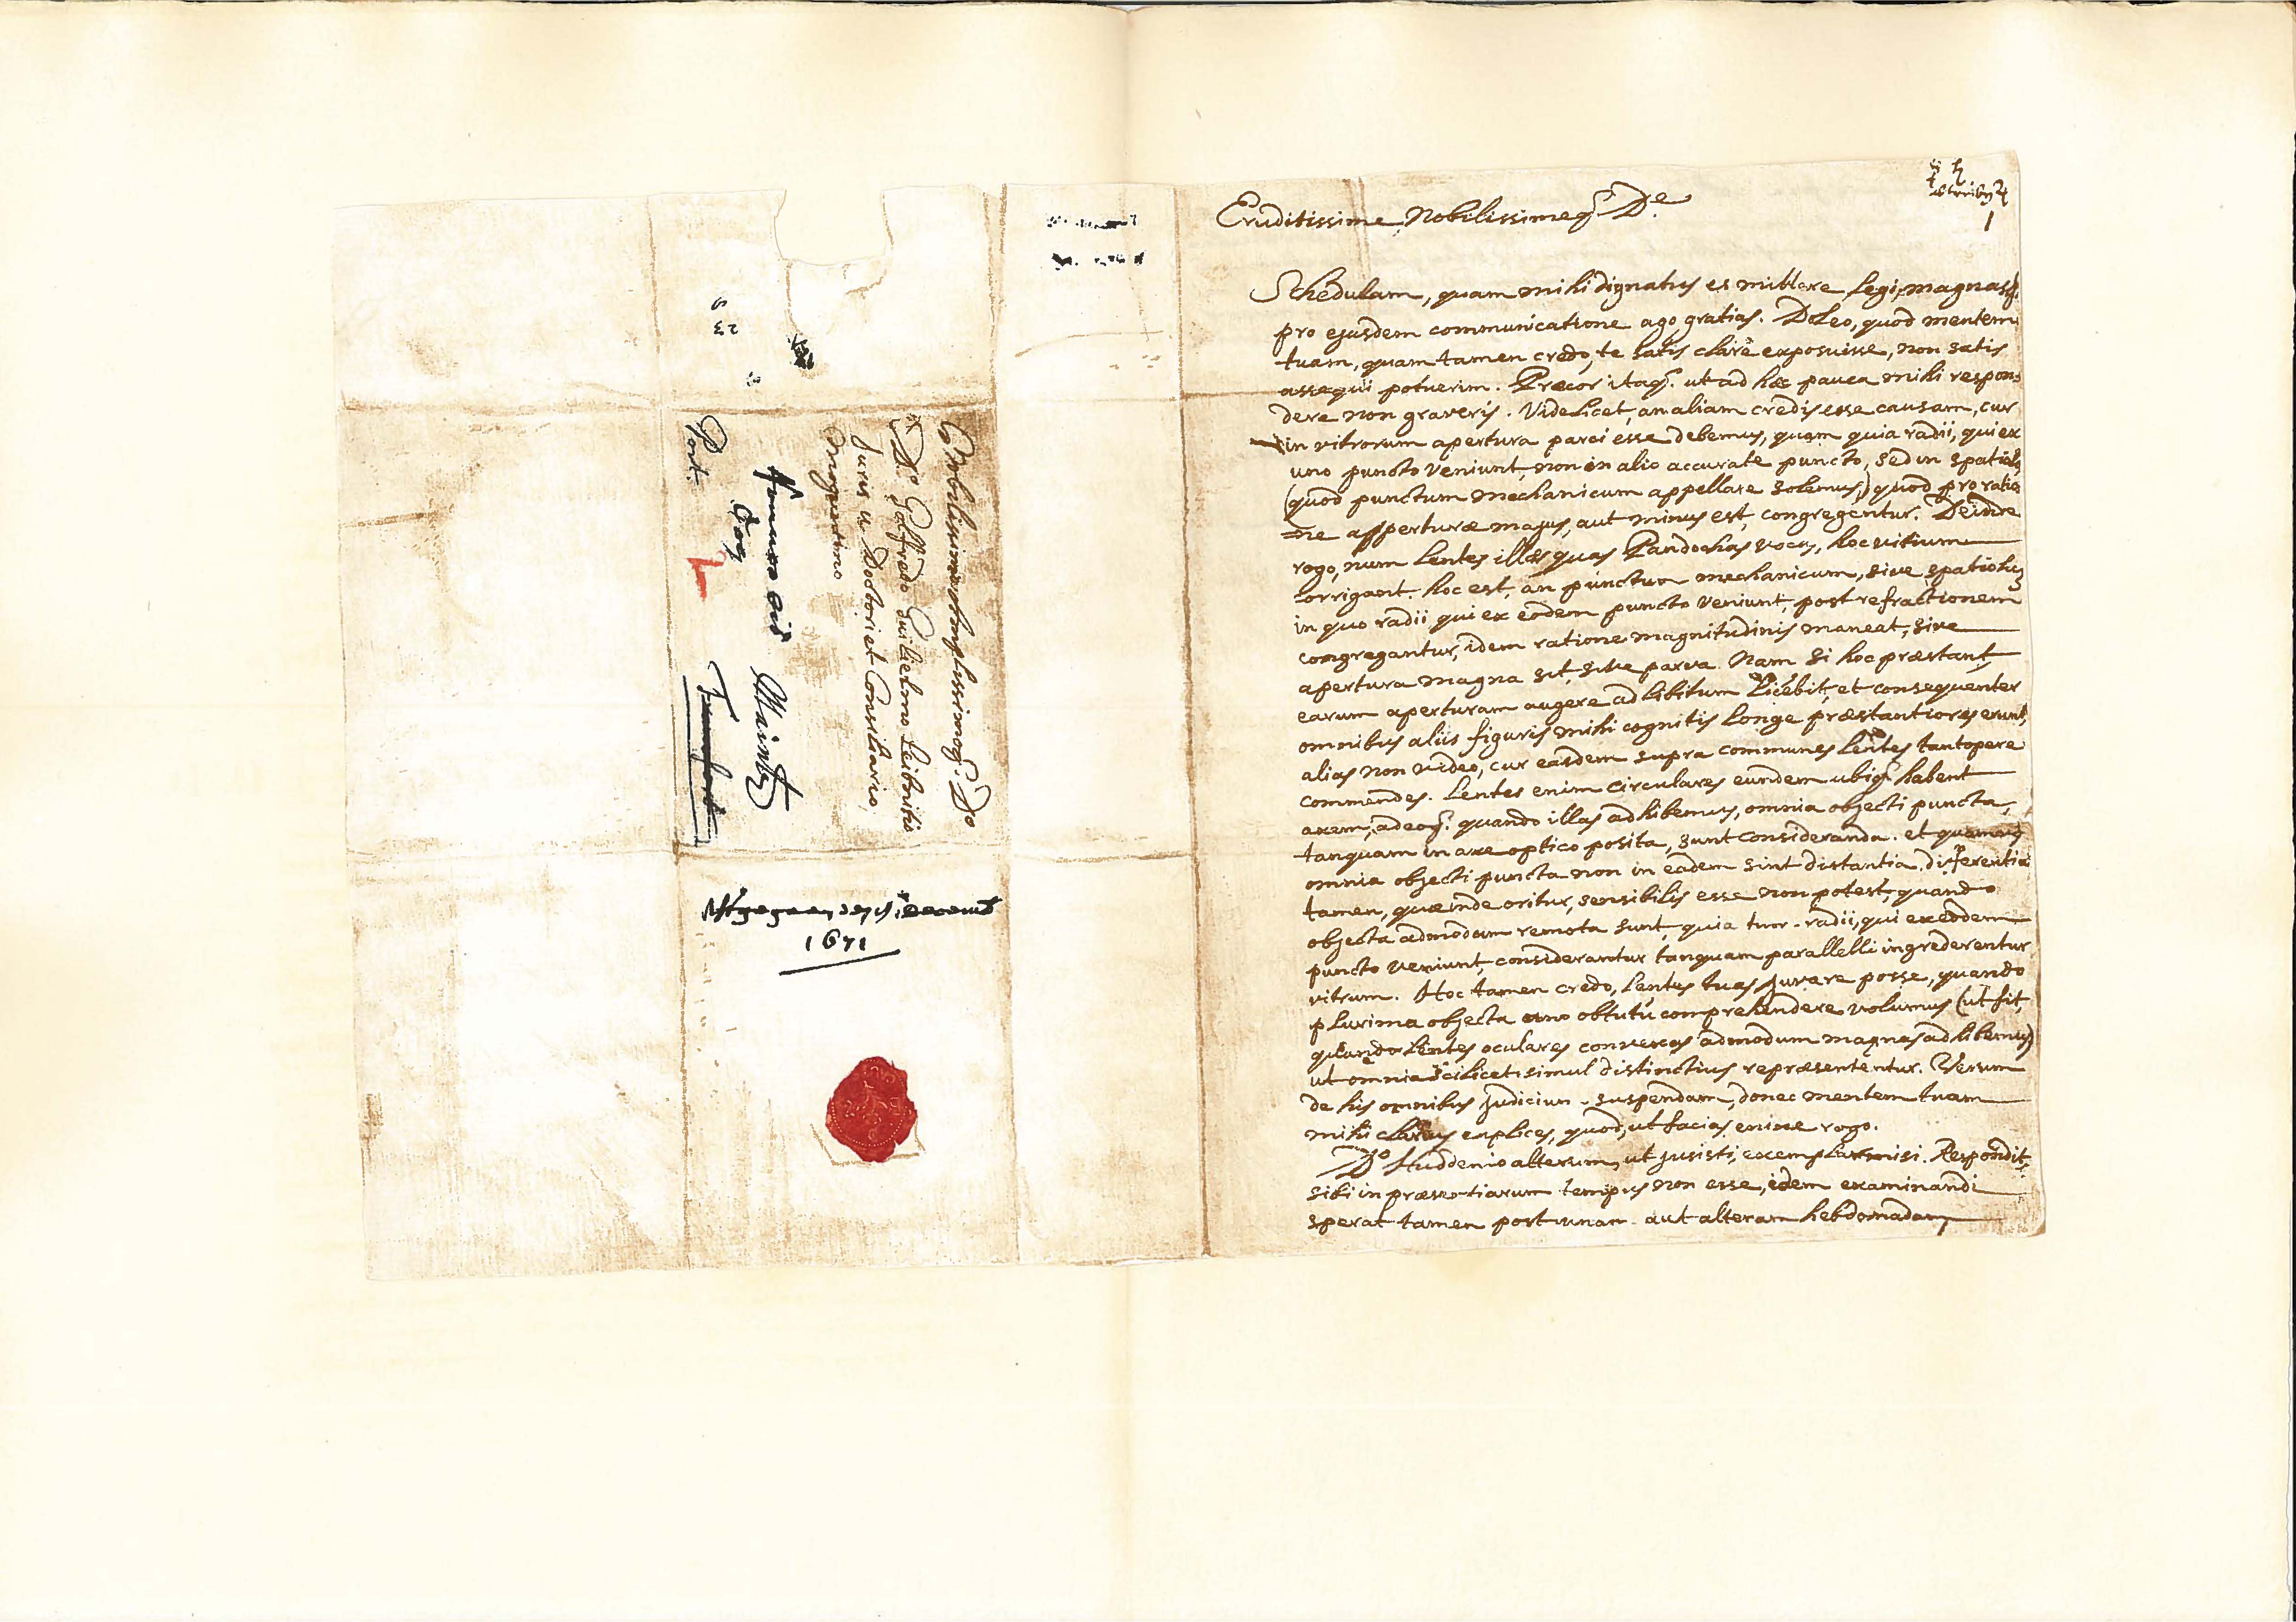 Eruditissime, Nobilissimeq; De.
Schedulam, quam mihi dignatus es mittere, legi, magnasq;
pro ejusdem communicatione ago gratias. Doleo, quod mentem
tuam, quam tamen credo, te satis clare exposuisse, non satis
assequi potuerim. Precor itaq; ut ad hæc pauca mihi respon-
dere non graveris. Videlicet, an aliam credis esse causam, cur
in vitrorum apertura parci esse debemus, quam quia radii, qui ex
uno puncto veniunt, non in alio accurate puncto, sed in spatiolo,
(quod punctum mechanicum appellare solemus,) quod pro ratio
ne apperturæ majus, aut minus est, congregentur. Deinde
rogo, num lentes illæ, quas Pandochas vocas, hoc vitium
corrigant. hoc est, an punctum mechanicum, sive spatiolum
in quo radii qui ex eodem puncto veniunt, post refractionem
congregantur, idem ratione magnitudinis maneat, sive
apertura magna sit, sive parva. Nam si hoc præstant,
earum aperturam augere ad libitum licebit, et consequenter
omnibus aliis figuris mihi cognitis longe præstantiores erunt,
alias non video, cur easdem supra communes lentes tantopere
commendes. Lentes enim circulares eundem ubiq; habent
axem, adeoq; quando illas adhibemus, omnia objecti puncta,
tanquam in axe optico posita, sunt consideranda. et quamvis
omnia objecti puncta non in eadem sint distantia, differentia
tamen, quæ inde oritur, sensibilis esse non potest, quando
objecta admodum remota sunt, quia tum radii, qui ex eodem
puncto veniunt, considerantur tanquam parallelli ingrederentur
vitrum. Hoc tamen credo, lentes tuas juvare posse, quando
plurima objecta uno obtutu comprehendere volumus (ut fit,
quando lentes oculares convexas admodum magnas adhibemus)
ut omnia scilicet simul distinctius repræsententur. Verum
de his omnibus judicium suspendam, donec mentem tuam
mihi clarius explices, quod, ut facias enixe rogo.
Do. Huddenio alterum, ut jusisti, exemplar misi. Respondit,
sibi in præsentiarum tempus non esse, idem examinandi
sperat tamen post unam aut alteram hebdomadam,
Nobilissimo Amplissimoq; Do
Do. Gotfredo Guilielmo Leibnitio
Juris u. Doctori et Consiliario
Moguntino
Maintz
Port.
1671